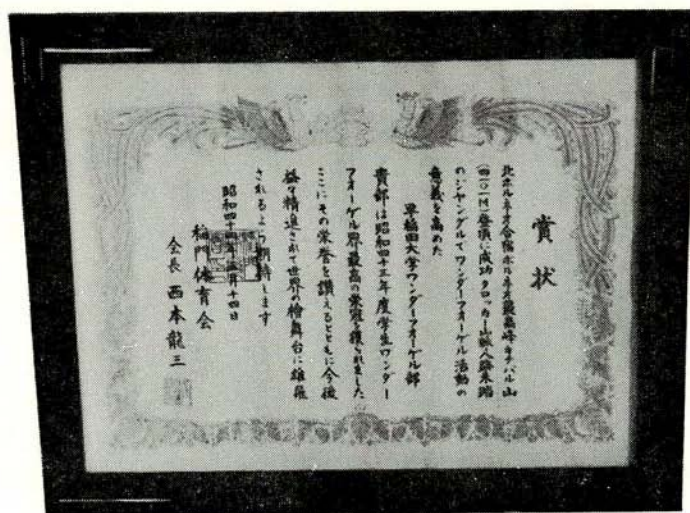 賞状
北ボルネオ合陽ボルネオ最高峰キナバル山
(四一〇一M)登頂に成功クロッカー山脈人跡未踏
のジャングルでワンダーフォーゲル活動の
意義を高めた
早稲田大学ワンダーフォーゲル部
貴部は昭和四十三年度学生ワンダー
フォーゲル界最高の栄冠を獲られました
ここにその栄誉を讃えるとともに今後
益々精進されて世界の檜舞台に雄飛
されるよう期待します
昭和四十四年三月十四日
稲門体育会
会長 西本龍三